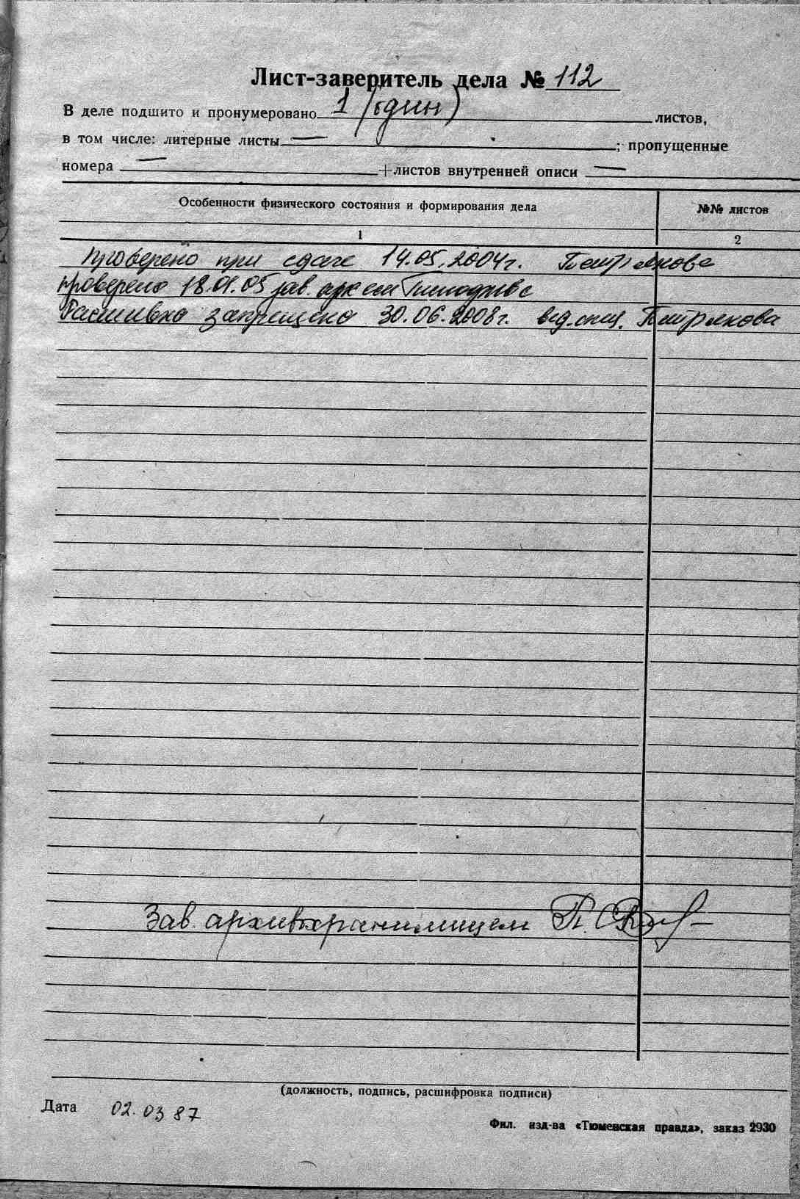 Лист-заверитель дела № 112
В деле подшито и пронумеровано 1 (один) листов,
в том числе: литерные листы — ; пропущенные
номера — + листов внутренней описи —
Особенности физического состояния и формирования дела
№№ листов
1
2
Проверено при сдаче 14.05.2004г.
проверено 18.01.05 зав.
Расшивка запрещена 30.06.2008г. вед.спец.
Зав. архивохранилищем
(должность, подпись, расшифровка подписи)
Дата 02.03 87
Фил. изд-ва «Тюменская правда», заказ 2930